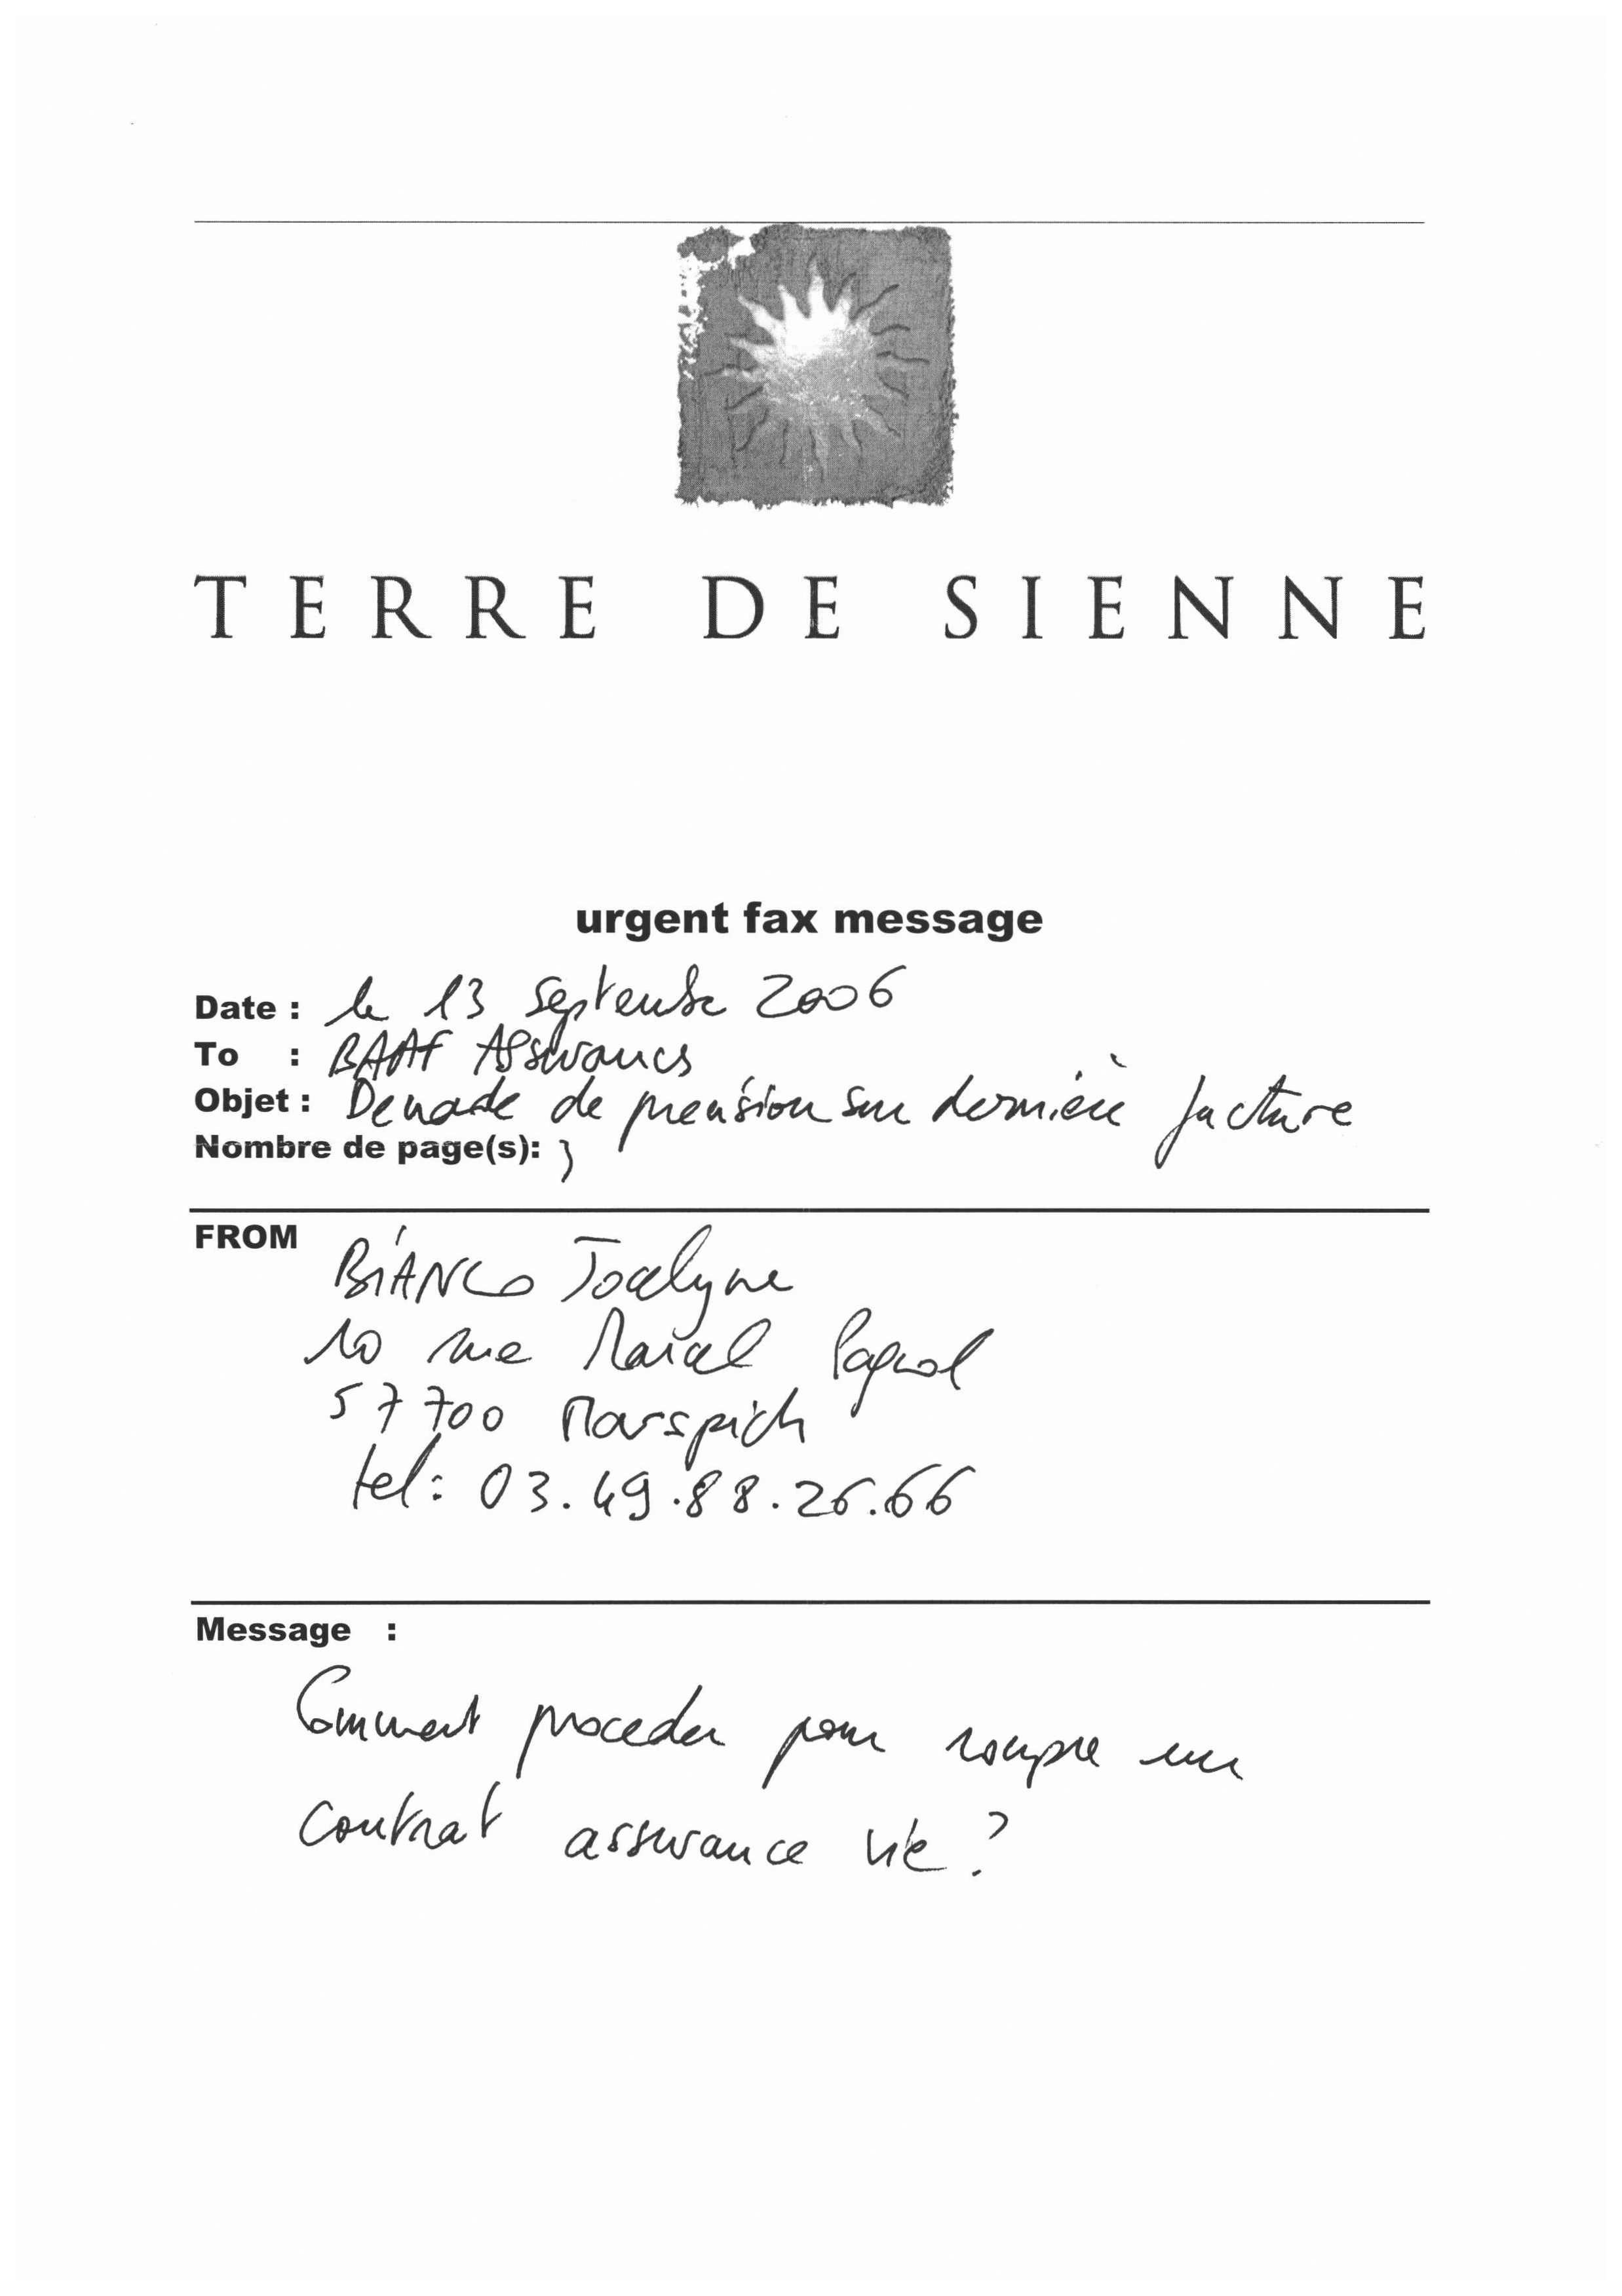 TERRE DE SIENNE
urgent fax message
Date : le 13 Septembre 2006
To : BAAF Assurances
Objet : Demande de precision sur dernière facture
Nombre de page(s): 3
FROM
BIANCO Jocelyne
10 rue Marcel Pagnol
57700 Marspich
tel: 03.49.88.26.66
Message :
Comment proceder pour rompre un
contrat assurance vie ?